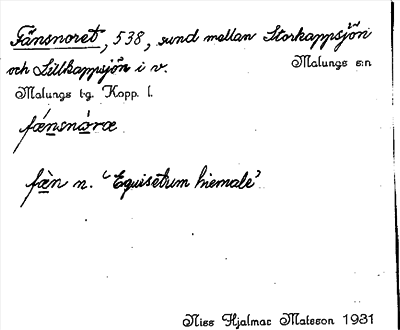 Fänsnoret, 538, sund mellan Storkappsjön
och Lillkappsjön i v.
Malungs s:n
Malungs t-g. Kopp. l.
fæ´nsnåræ
fæ`n n. "Equisetum hiemale"
Niss Hjalmar Matsson 1931